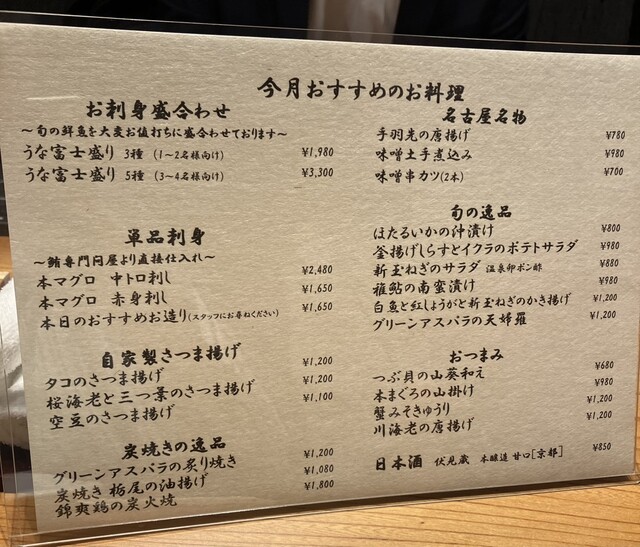 今月おすすめのお料理
お刺身盛合わせ
〜旬の鮮魚を大変お値打ちに盛合わせております〜
うな富士盛り 3種 (1〜2名様向け) ¥1,980
うな富士盛り 5種 (3〜4名様向け) ¥3,300
単品刺身
〜鮪専門問屋より直接仕入れ〜
本マグロ 中トロ刺し ¥2,480
本マグロ 赤身刺し ¥1,650
本日のおすすめお造り(スタッフにお尋ねください) ¥1,650
自家製さつま揚げ
タコのさつま揚げ ¥1,200
桜海老と三つ葉のさつま揚げ ¥1,200
空豆のさつま揚げ ¥1,100
炭焼きの逸品
グリーンアスパラの炙り焼き ¥1,200
炭焼き 栃尾の油揚げ ¥1,080
錦爽鶏の炭火焼 ¥1,800
名古屋名物
手羽先の唐揚げ ¥780
味噌土手煮込み ¥980
味噌串カツ(2本) ¥700
旬の逸品
ほたるいかの沖漬け ¥800
釜揚げしらすとイクラのポテトサラダ ¥980
新玉ねぎのサラダ 温泉卵ポン酢 ¥880
稚鮎の南蜜漬け ¥980
白魚と紅しょうがと新玉ねぎのかき揚げ ¥1,200
グリーンアスパラの天婦羅 ¥1,200
おつまみ
つぶ貝の山葵和え ¥680
本まぐろの山掛け ¥980
蟹みそきゅうり ¥1,200
川海老の唐揚げ ¥1,200
日本酒 伏見蔵 本醸造 甘口[京都] ¥850